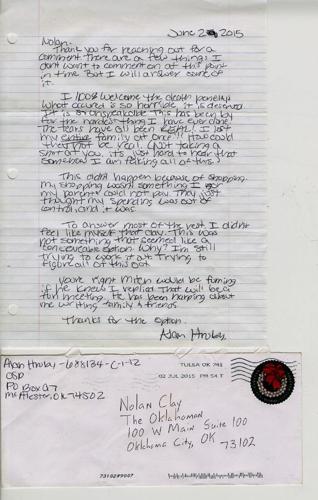 June 2, 2015
Nolan,
Thank you for reaching out for a
comment. There are a few things I
don't want to comment on at this point
in time. But I will answer some of
it.
I 100% welcome the death penalty
What occured is so horrible, it is deserved
It is an unspeakable This has been by
far the hardest thing I have ever done
The tears have all been REAL! I lost
my entire family at once!! How could
they not be real. Not taking a
shot at you, it's just hard to hear that
somehow I am faking all of this!
This didn't happen because of shopping.
my shopping wasn't something I or
my parents could not pay. They just
thought my spending was out of
control, and it was.
To answer most of the rest I didn't
feel like myself that day. This was
not something that seemed like a
conceivable option. Why? I'm still
trying to work it out. Trying to
figure all of this out
You're right Mitch would be fuming
if he knew I replied. That will be a
fun meeting. He has been harping about
me writing family & friends.
Thanks for the option.
Alan Hruby
Alan Hruby -688134-C-1-12
OSP
PO Box 97
McAlester, OK 74502
TULSA OK 741
02 JUL 2015 PM 5 T
Nolan Clay
The Oklahoman
100 W Main Suite 100
Oklahoma City, OK
73102